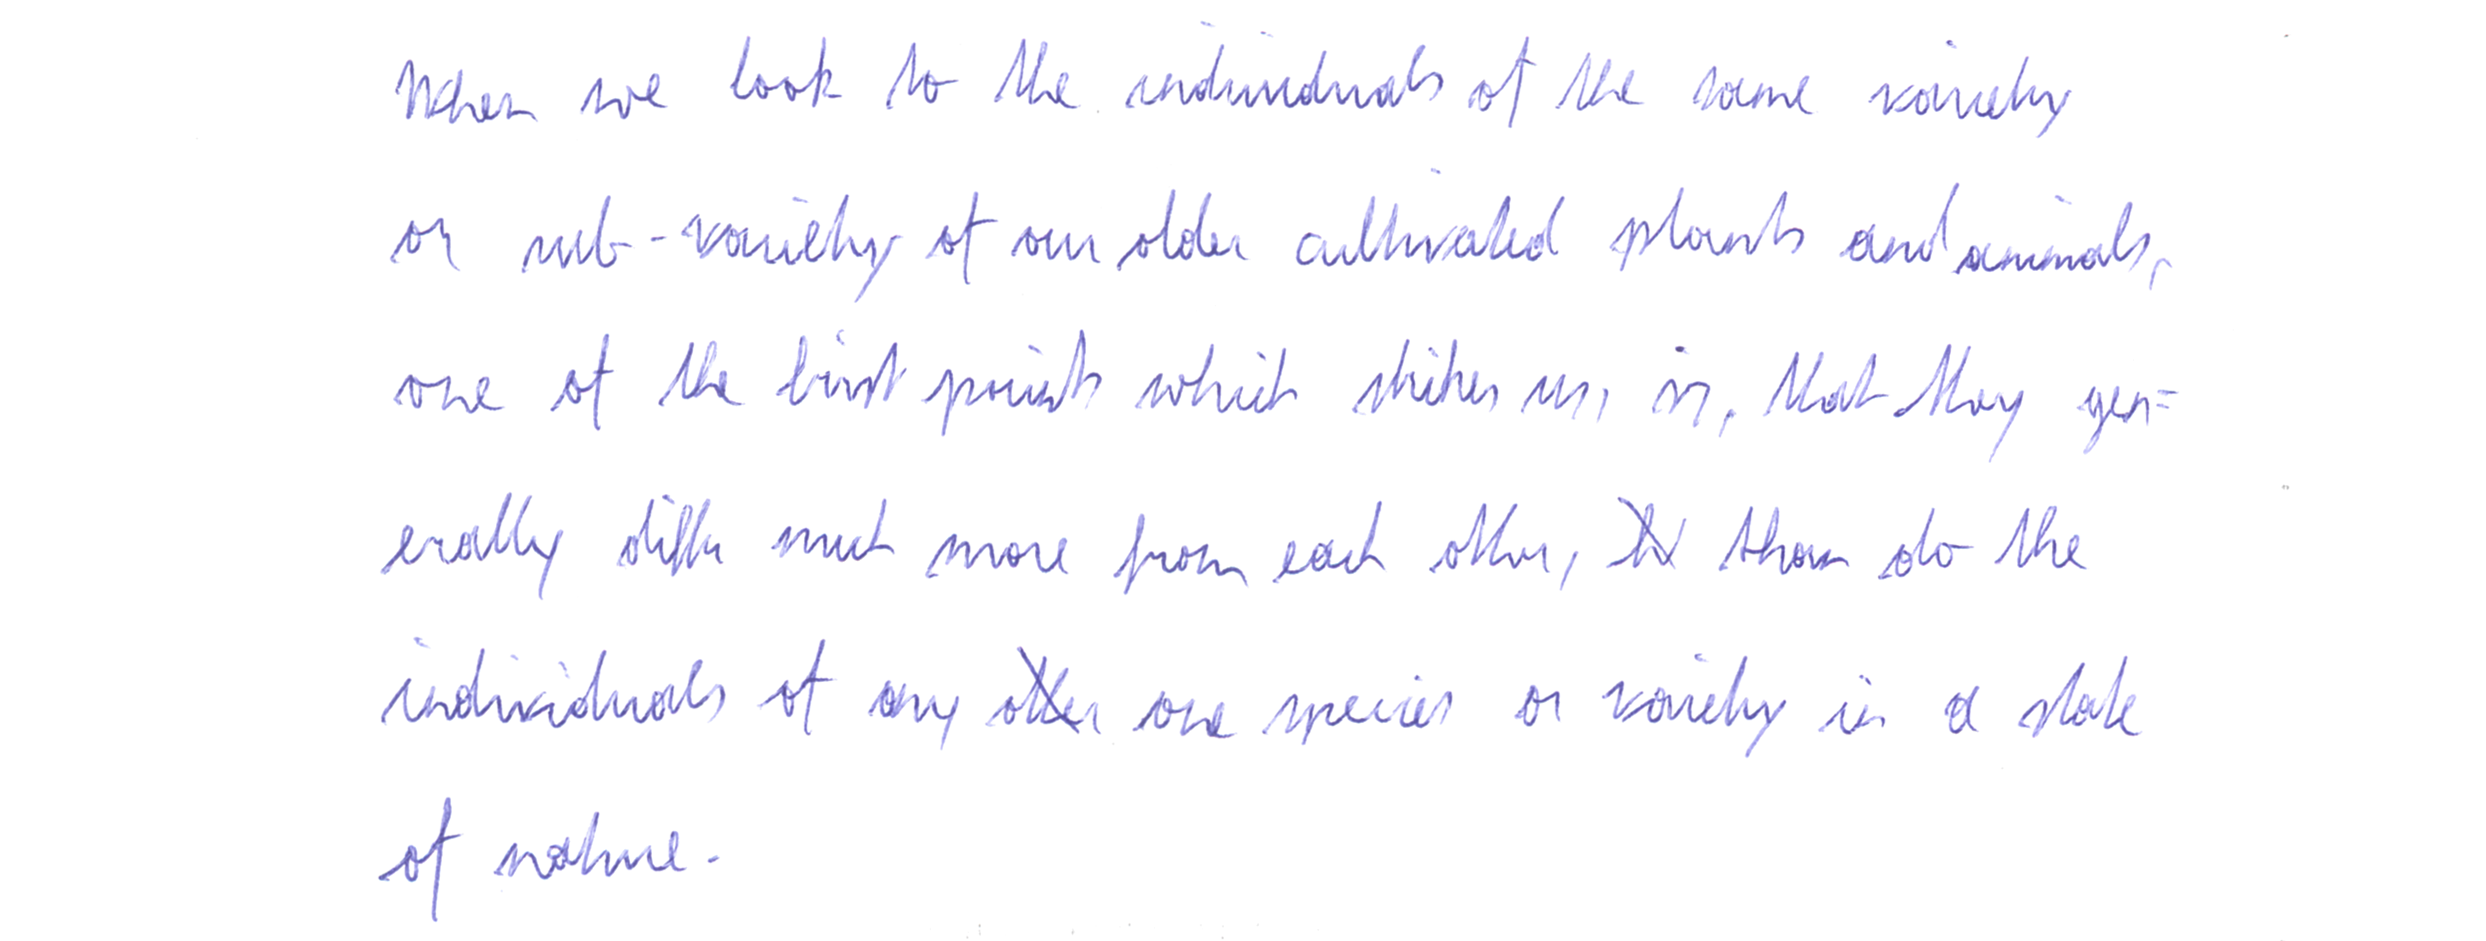 When we look to the individuals of the same variety
or sub-variety of our older cultivated plants and animals,
one of the first points which strikes us, is, that they gen=
erally differ much more from each other, than do the
individuals of any one species or variety in a state
of nature.